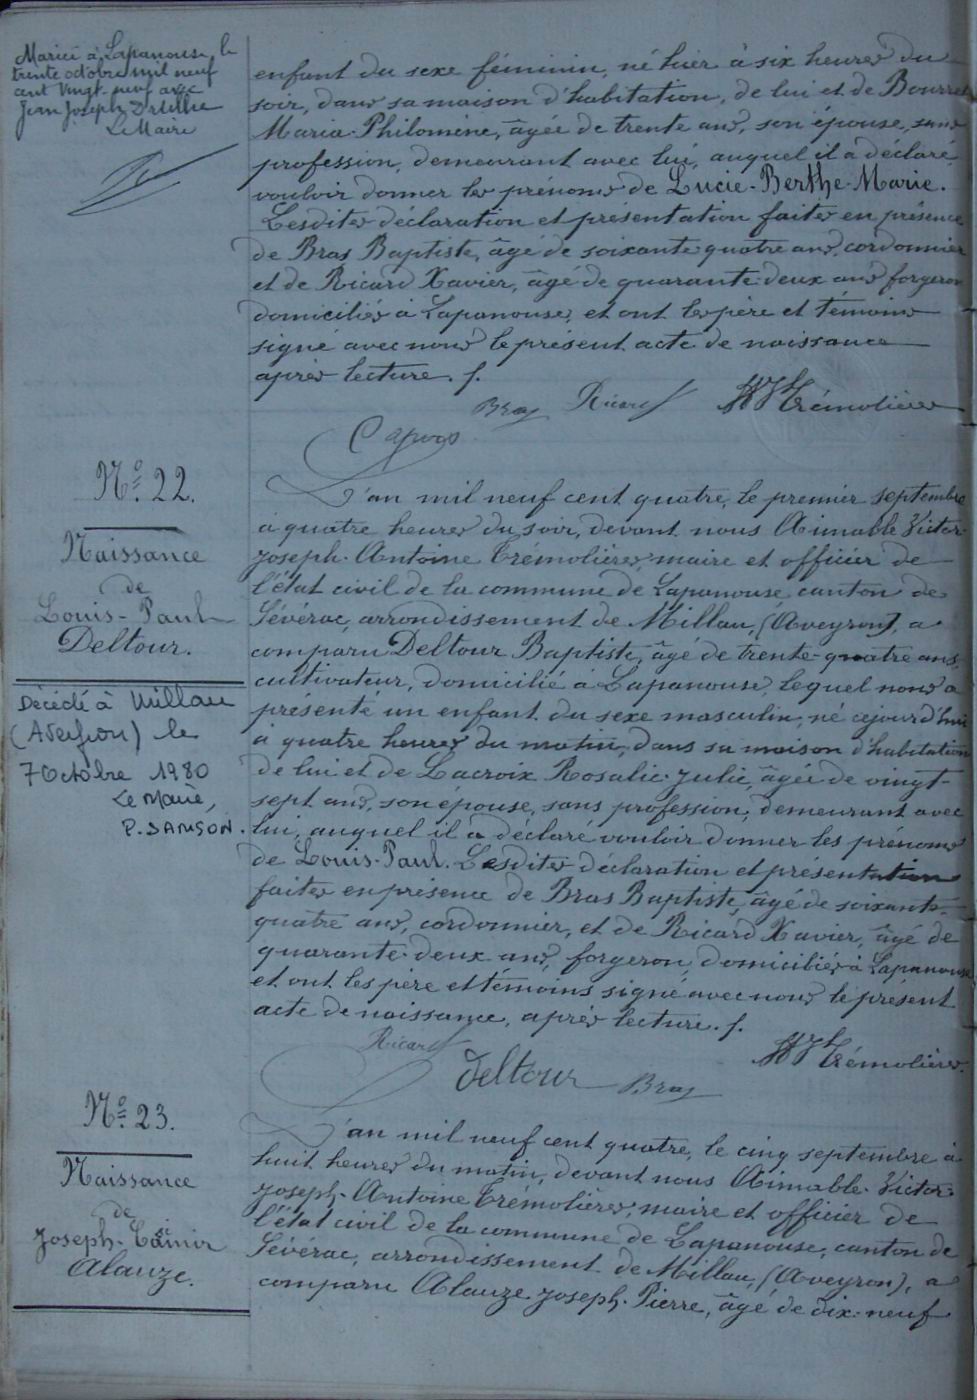 Mariée à Lapanouse, le
trente octobre mil neuf
cent vingt-neuf avec
Jean Joseph
Le Maire
enfant du sexe féminin, né hier à six heures du
soir, dans sa maison d'habitation, de lui et de Bourrel
Maria-Philomène, âgée de trente ans, son épouse, sans
profession, demeurant avec lui, auquel il a déclaré
vouloir donner les prénoms de Lucie-Berthe-Marie.
Lesdites déclaration et présentation faites en présence
de Bras Baptiste, âgé de soixante-quatre ans, cordonnier
et de Ricard Xavier, âgé de quarante-deux ans forgeron
domiciliés à Lapanouse, et ont les père et témoins
signé avec nous le présent acte de naissance
après lecture. f.
Bras Ricard Trémolières
Nº 22.
Naissance
de
Louis-Paul
Deltour.
Décédé à Millau
(Aveyron) le
7 Octobre 1980
Le Maire,
P. SAMSON.
L'an mil neuf cent quatre, le premier septembre
à quatre heures du soir, devant nous Aimable-Victor-
Joseph-Antoine Trémolières, maire et officier de
l'état civil de la commune de Lapanouse canton de
Sévérac, arrondissement de Millau, (Aveyron), a
comparu Deltour Baptiste, âgé de trente-quatre ans,
cultivateur, domicilié à Lapanouse, lequel nous a
présenté un enfant du sexe masculin, né cejourd'hui
à quatre heures du matin, dans sa maison d'habitation
de lui et de Lacroix Rosalie-Julie, âgée de vingt-
sept ans, son épouse, sans profession, demeurant avec
lui, auquel il a déclaré vouloir donner les prénoms
de Louis-Paul. Lesdites déclaration et présentation
faites en présence de Bras Baptiste, âgé de soixante-
quatre ans, cordonnier, et de Ricard Xavier, âgé de
quarante-deux ans, forgeron, domiciliés à Lapanouse
et ont les père et témoins signé avec nous le présent
acte de naissance, après lecture. f.
Ricard Deltour Bras Trémolières
Nº 23.
Naissance
de
Joseph-Casimir
Alauze.
L'an mil neuf cent quatre, le cinq septembre à
huit heures du matin, devant nous Aimable-Victor-
Joseph-Antoine Trémolières, maire et officier de
l'état civil de la commune de Lapanouse, canton de
Sévérac, arrondissement de Millau, (Aveyron), a
comparu Alauze Joseph-Pierre, âgé de dix-neuf